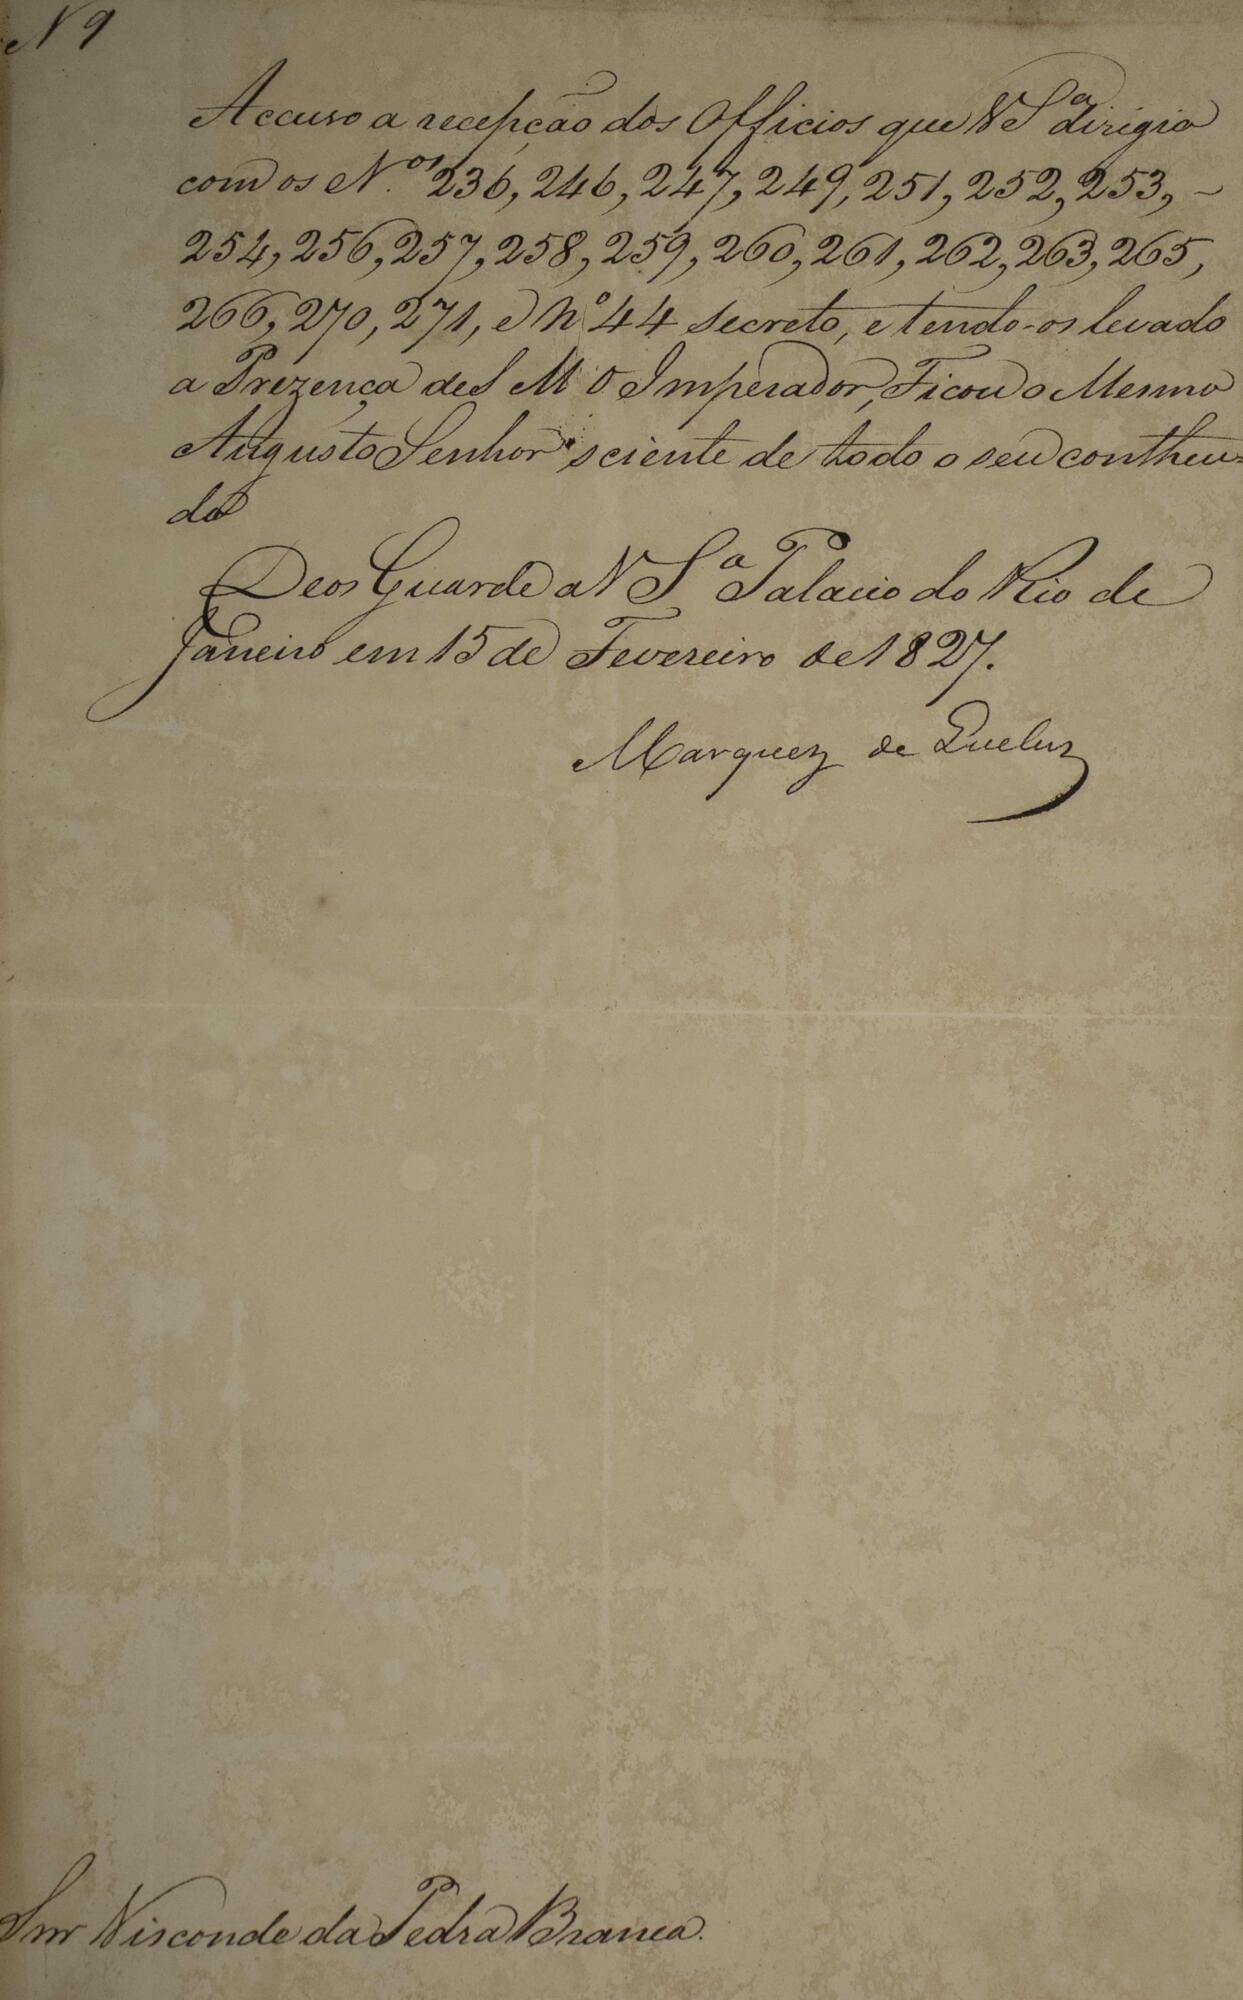 N 9
Accuso a recepção dos Officios que V Sª dirigio
com os N.ºˢ 236, 246, 247, 249, 251, 252, 253, ~
254, 256, 257, 258, 259, 260, 261, 262, 263, 265,
266, 270, 271, e Nº 44 secreto, e tendo-os levado
a Prezença de S M O Imperador, Ficou o Mesmo
Augusto Senhor sciente de todo o seu contheu=
do
Deos Guarde a V Sª Palacio do Rio de
Janeiro em 15 de Fevereiro de 1827.
Marquez de Queluz
Snr Visconde da Pedra Branca.